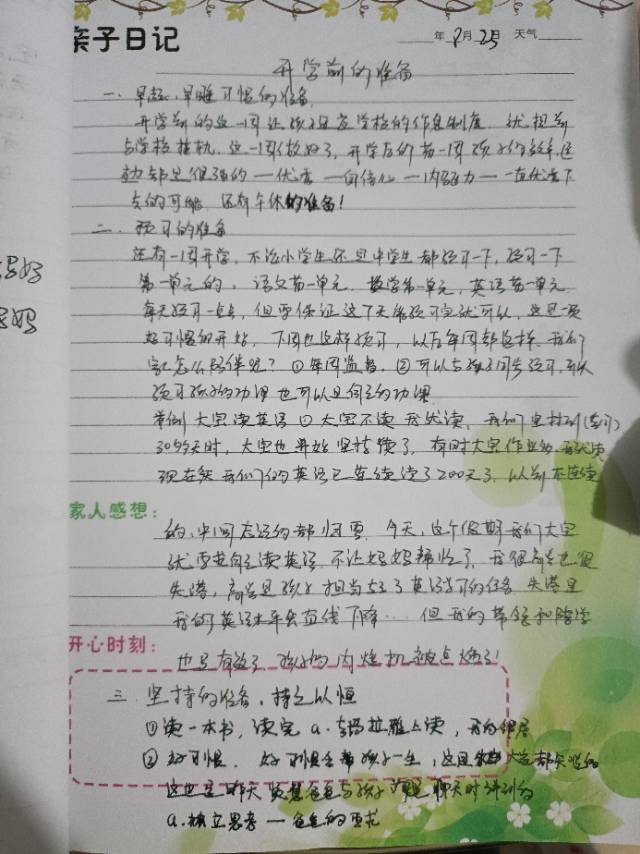 亲子日记
年8月25日 天气
开学前的准备
一、早起、早睡习惯的准备
开学前的这一周让孩子适应学校的作息制度 就提前
与学校接轨、这一周做好了,开学后的第一周孩子的效率
都是很强的 — 优秀 — 自信心 — 内驱力 — 一直优秀下
去的可能 还有午休的准备!
二、预习的准备
还有一周开学,不论小学生还是中学生都预习一下,预习一下
第一单元的,语文第一单元 数学第一单元,英语第一单元
每天预习一点点,但要保证这7天能预习完就可以,这是一项
好习惯的开始,下周也这样预习,以后每周都这样 我们
家长怎么陪伴呢?①每周监督,②可以与孩子同步预习
预习孩子的功课 也可以是自己的功课
举例 大宝读英语 ①大宝不读 我就读,我们坚持到
30多天时,大宝也开始坚持读了,有时大宝作业多
现在我们的英语已连续读了200天了,以前不连续
家人感想:
的,中间忘记的都归零 今天,这个假期我们大宝
就要自己读英语 不让妈妈操心了 我很高兴也很
失落,高兴是孩子担当起了英语学习的任务 失落是
我的英语水平会直线下降… 但我的带领和陪学
开心时刻:
也是有效了 孩子的内燃机被点燃了!
三、坚持的准备,持之以恒
①读一本书,读完 a.喜玛拉雅上读,
②好习惯. 好习惯会带孩子一生,这
这也是昨天 爸爸与孩子 聊天时讲到的
a.独立思考 — 爸爸的要求